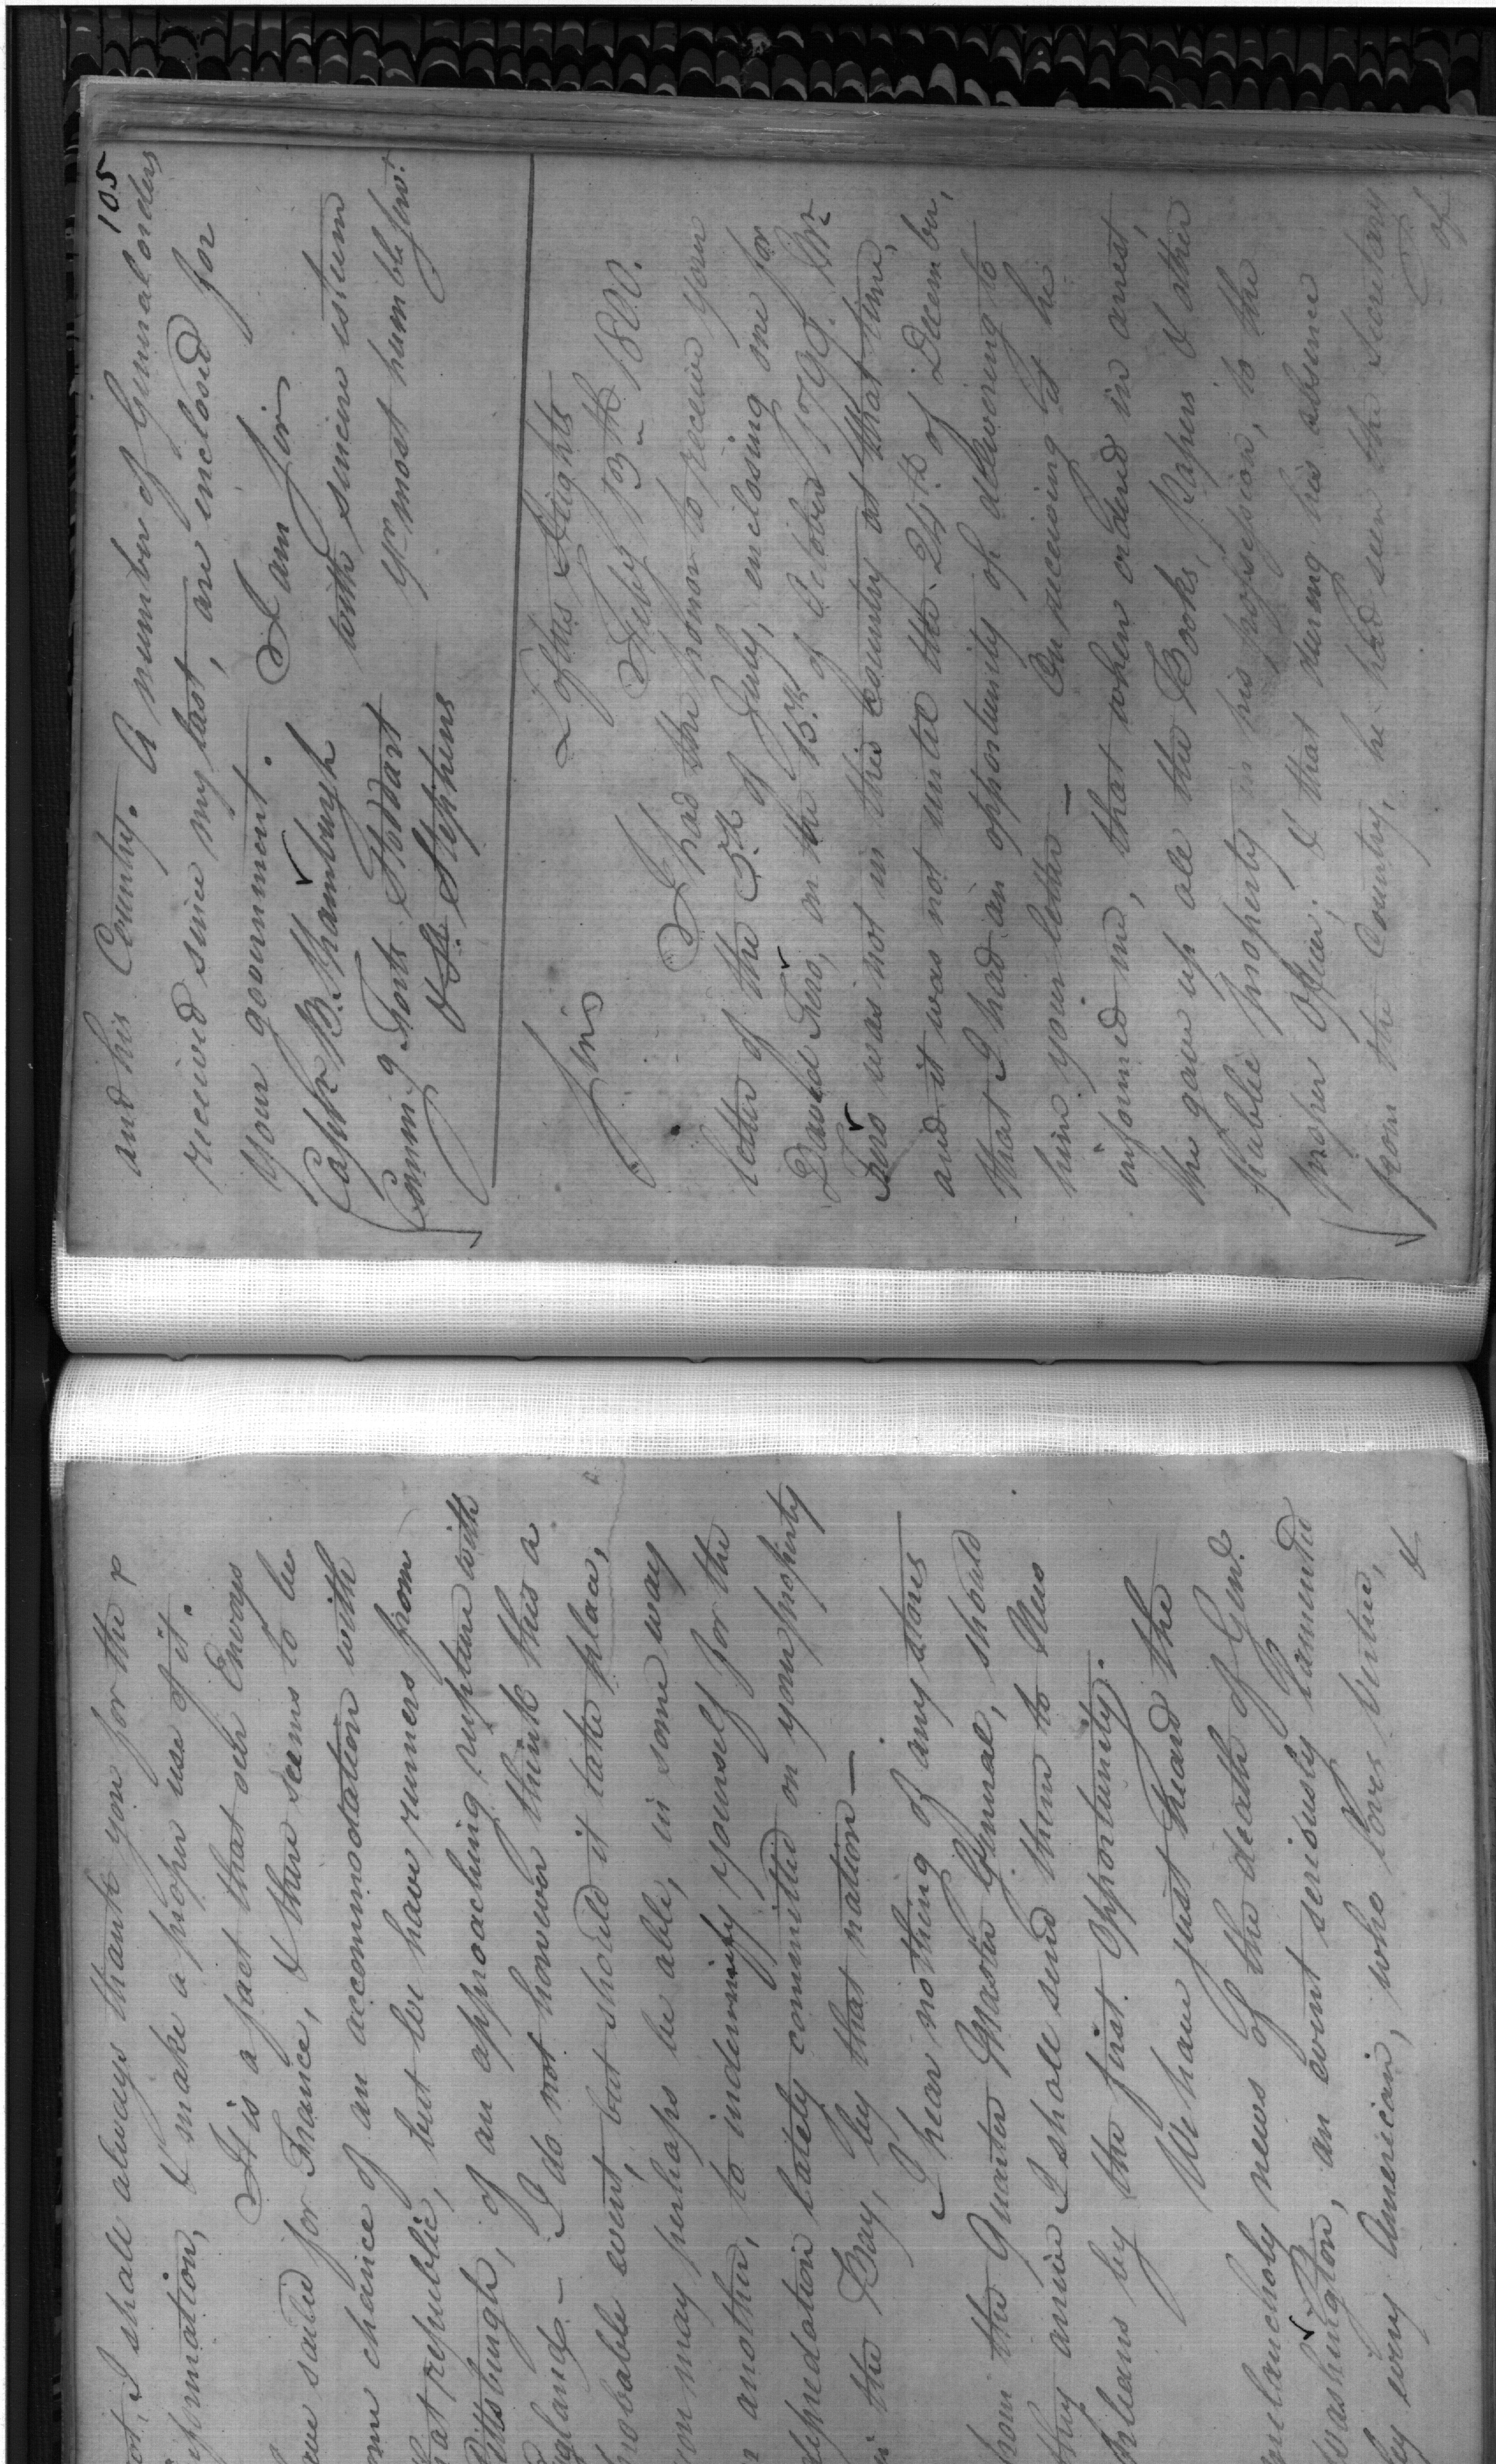 I shall always thank you for the
& make a proper use of it.
It is a fact that our Envoys
sailed for France, & there seems to be
chance of an accommodation with
that republic, but we have rumors from
Pittsburgh, of an approaching rupture with
England— I do not however think this a
probable event, but should it take place,
you may perhaps be able, in some way
or another, to indemnify yourself for the
depredation lately committed on your property
in the Bay, by that nation—
I hear nothing of any stores
from the Quarter Master General, should
they arrive I shall send them to New
Orleans by the first opportunity.
We have just heard the
melancholy news of the death of Genl.
Washington, an event seriously lamented
by every American, who loves Virtue,
&
105
and his Country. A number of General orders
received since my last, are inclosed for
your government. I am Sir
with sincere esteem
yr. most humble servt.
Captn. B. Shaumburgh
Comm.g Forts Stoddart
& St. Stephens
Loftus Heights
Feby 13th 1800.
Sir
I had the honor to receive your
letter of the 5th of July, enclosing one for
David Fero, on the 15th of October 1799. Mr.
Fero was not in this country at that time,
and it was not until the 24th of December,
that I had an opportunity of delivering to
him your letter— On receiving it he
informed me, that when ordered in arrest,
he gave up all the Books, Papers & other
public property in his possession, to the
proper officer; & that during his absence
from the Country, he had seen the Secretary
of